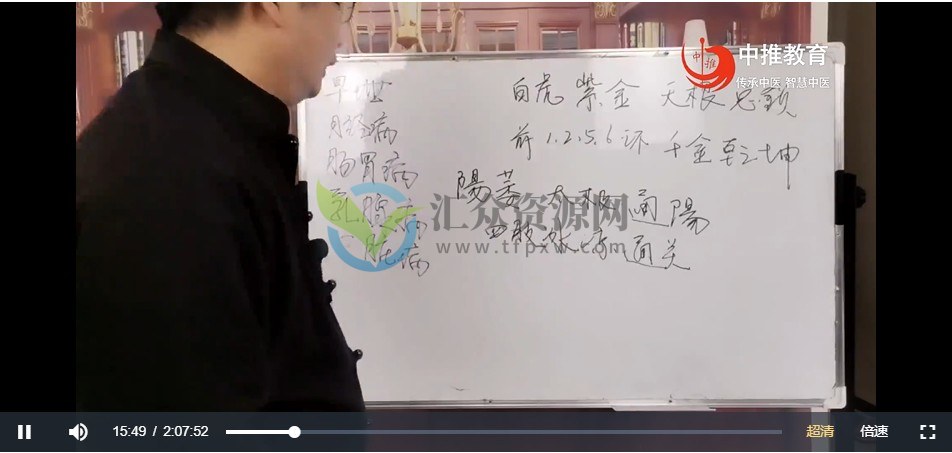 中推教育
传承中医 智慧中医
早泄
白虎 紫金 天根
前 1.2.5.6 环 千金 乾坤
肠胃病
陽萎 太极 通陽
乳腺病
四肢 通关
脏病
汇众资源网
www.tfpxw.com
15:49 / 2:07:52
超清
倍速